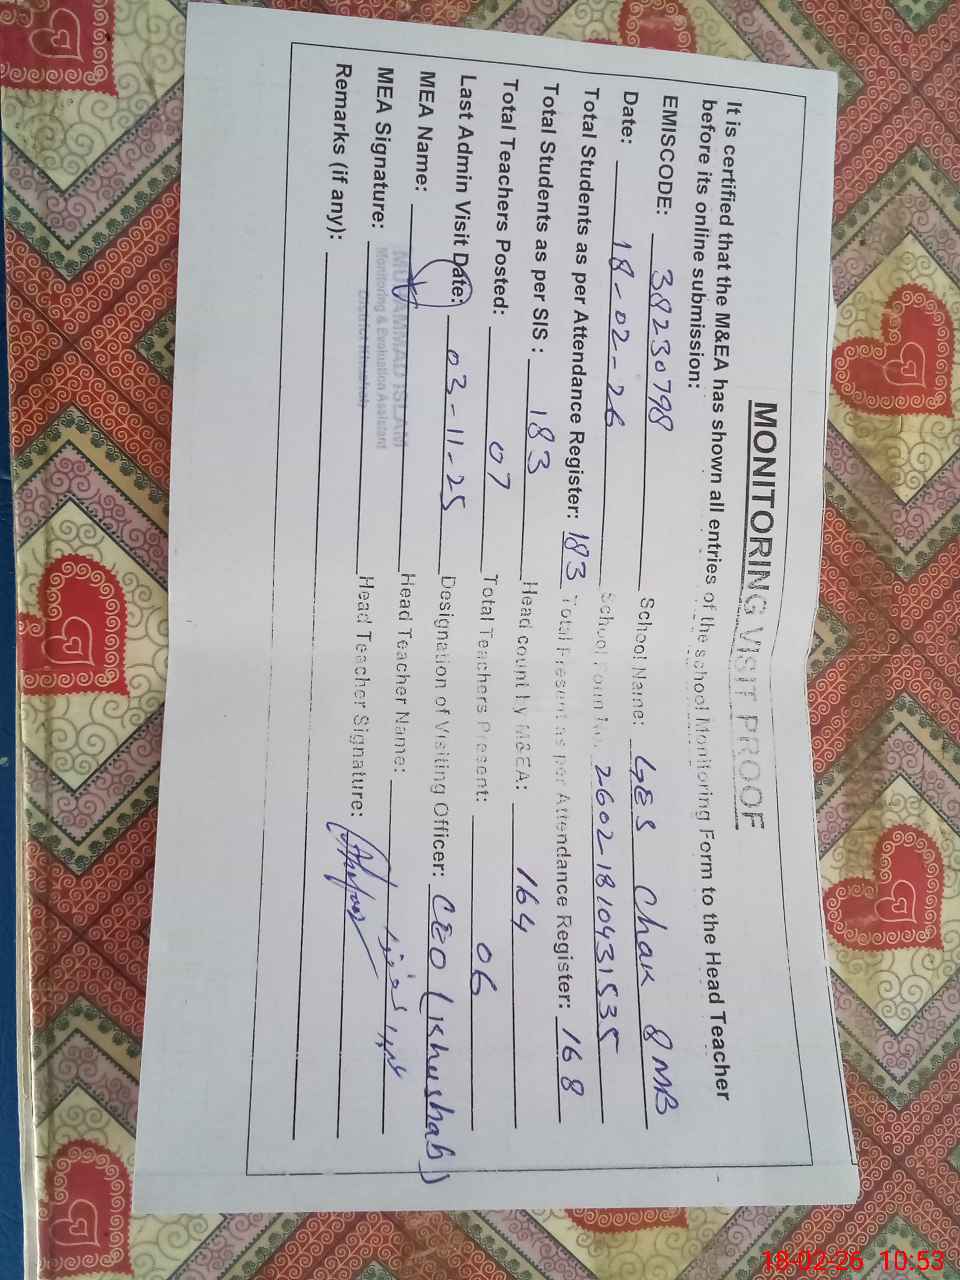 MONITORING VISIT PROOF
It is certified that the M&EA has shown all entries of the school Monitoring Form to the Head Teacher
before its online submission:
EMISCODE: 38230798 School Name: GES Chak 8 MB
Date: 18-02-26 School Form No. 26021810431535
Total Students as per Attendance Register: 183 Total Present as per Attendance Register: 168
Total Students as per SIS : 183 Head count by M&EA: 164
Total Teachers Posted: 07 Total Teachers Present: 06
Last Admin Visit Date: 03-11-25 Designation of Visiting Officer: CEO (Khushab)
MEA Name: MUHAMMAD ISLAM Head Teacher Name:
Monitoring & Evaluation Assistant
District Khushab
MEA Signature: Head Teacher Signature:
Remarks (if any):
18-02-26 10:53